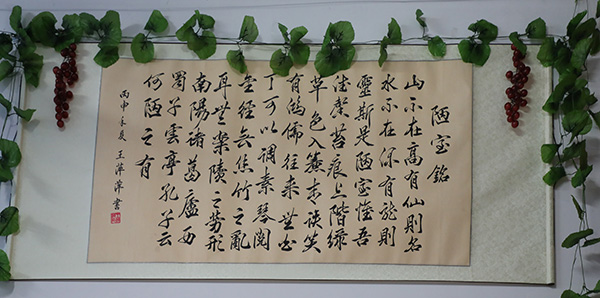 陋室銘
山不在高有仙則名
水不在深有龍則
靈斯是陋室惟吾
德馨苔痕上階綠
草色入簾青談笑
有鴻儒往來無白
丁可以調素琴閱
金經無絲竹之亂
耳無案牘之勞形
南陽諸葛廬西
蜀子雲亭孔子云
何陋之有
丙申年夏 王萍萍書